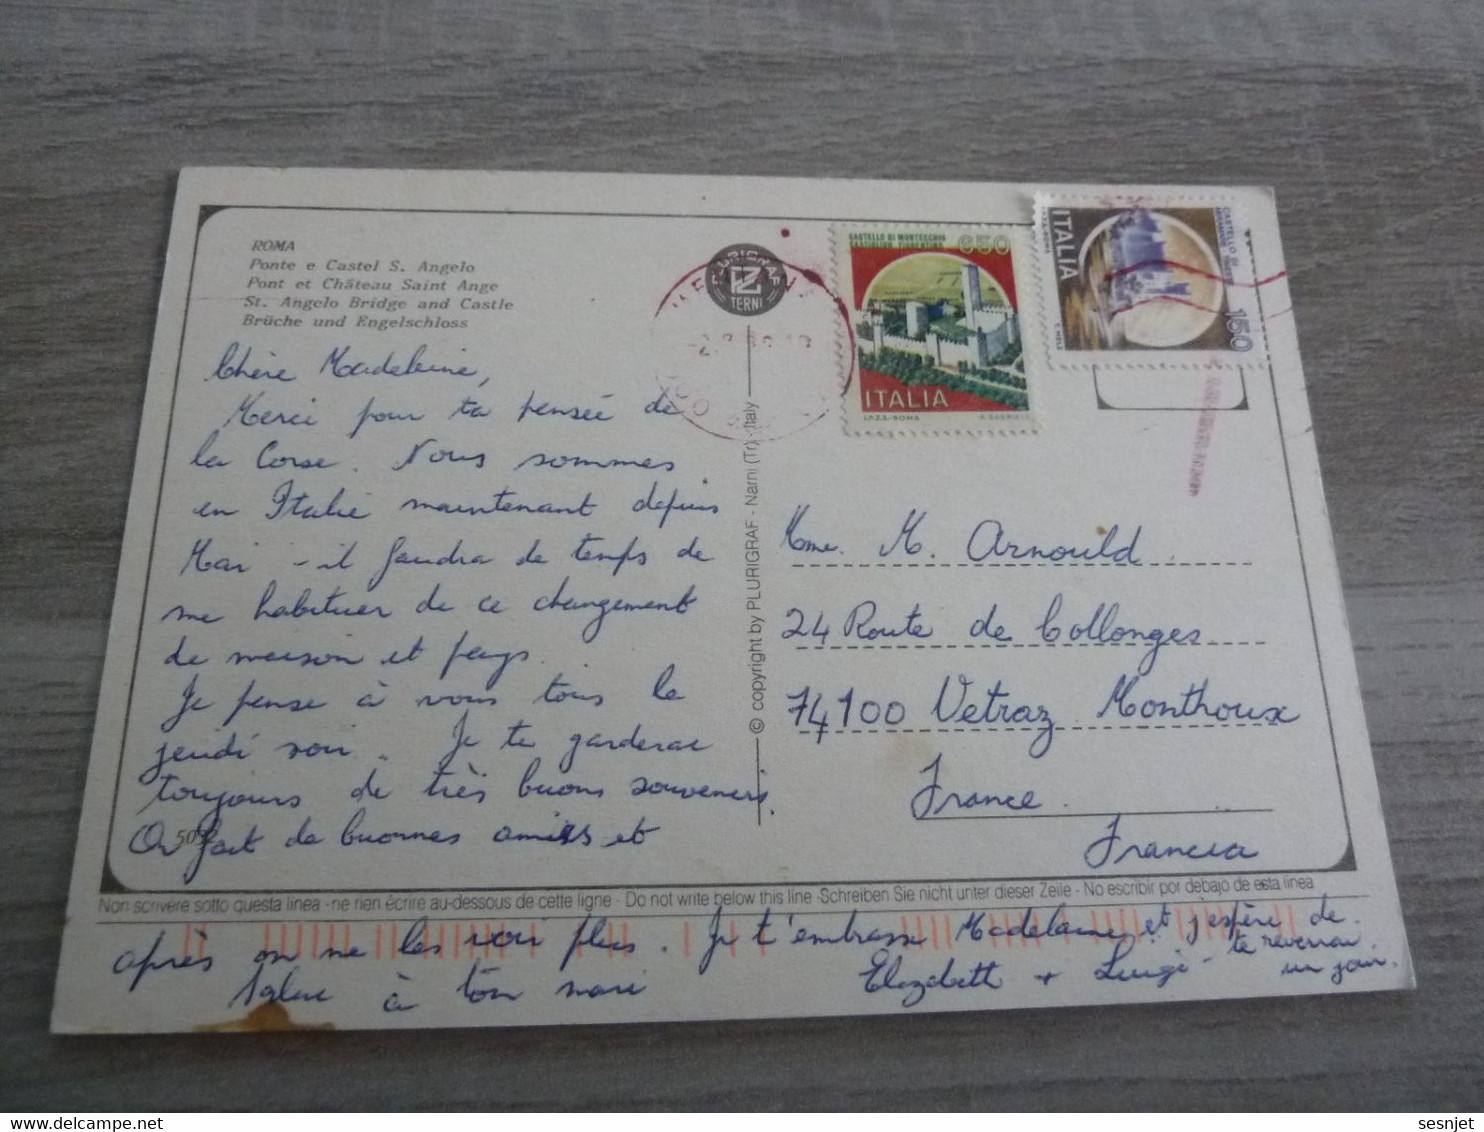 ROMA
Ponte e Castel S. Angelo
Pont et Château Saint Ange
St. Angelo Bridge and Castle
Brüche und Engelschloss
PLURIGRAF
TERNI
CASTELLO DI MONTECCHIO
650
ITALIA
I.P.Z.S.-ROMA
ITALIA
CASTELLO DI
150
Chère Madeleine,
Merci pour ta pensée de
la Corse. Nous sommes
en Italie maintenant depuis
Mai - il faudra de temps de
me habituer de ce changement
de maison et pays.
Je pense à vous tous le
jeudi soir. Je te garderai
toujours de très buons souvenirs.
On fait de buonnes amies et
© copyright by PLURIGRAF - Narni (Tr) - Italy
Mme. M. Arnould.
24 Route de Collonges
74100 Vetraz Monthoux
France.
Francia
Non scrivere sotto questa linea - ne rien écrire au-dessous de cette ligne - Do not write below this line - Schreiben Sie nicht unter dieser Zeile - No escribir por debajo de esta linea
après on ne les voir plus. Je t'embrasse Madelaine et j'espère de
te reverrai
un jour.
Salue à ton mari
Elizabeth + Luigi -